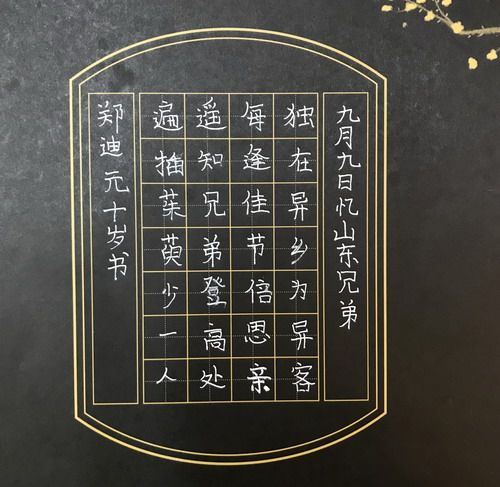 九月九日忆山东兄弟
独在异乡为异客
每逢佳节倍思亲
遥知兄弟登高处
遍插茱萸少一人
郑迪元十岁书